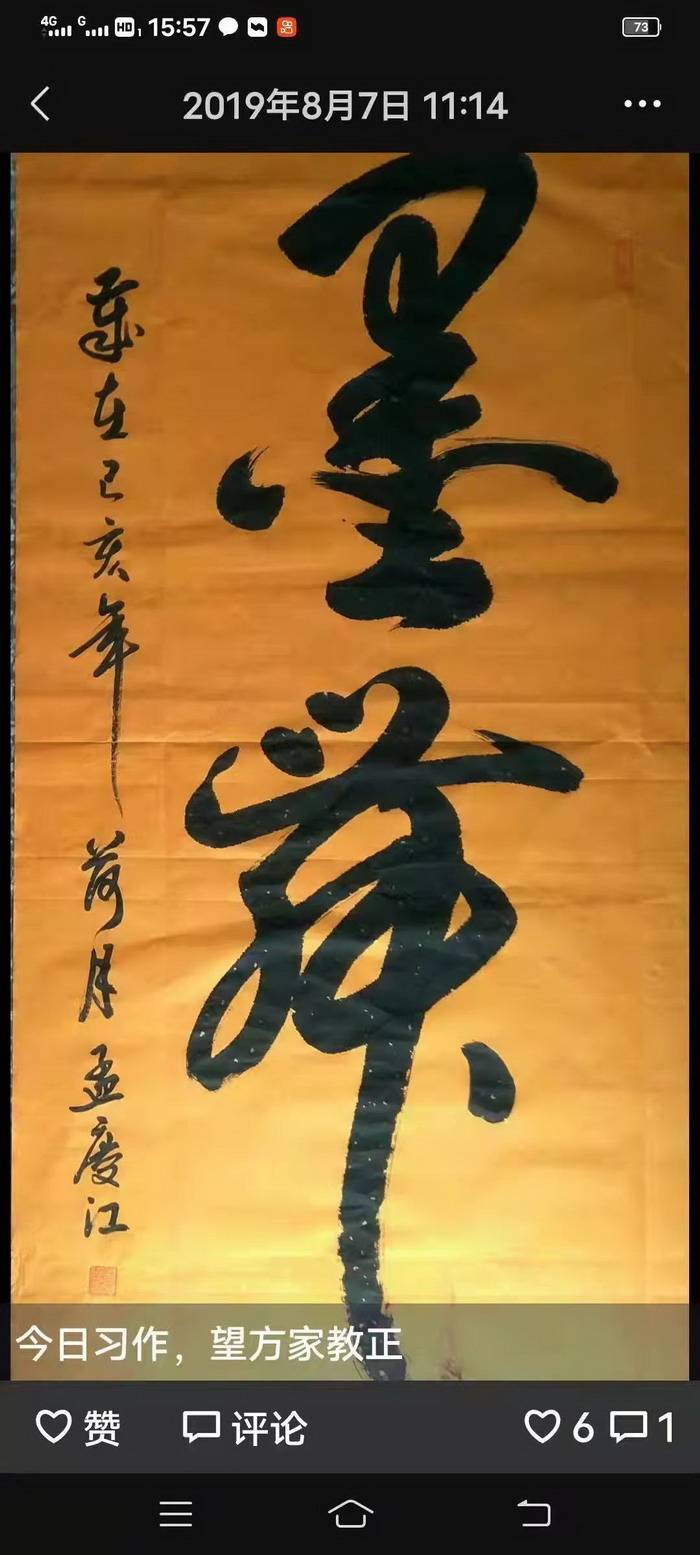 4G G HD 1 15:57 73
2019年8月7日 11:14
墨舞
歲在己亥年荷月孟慶江
今日习作，望方家教正
赞 评论 6 1